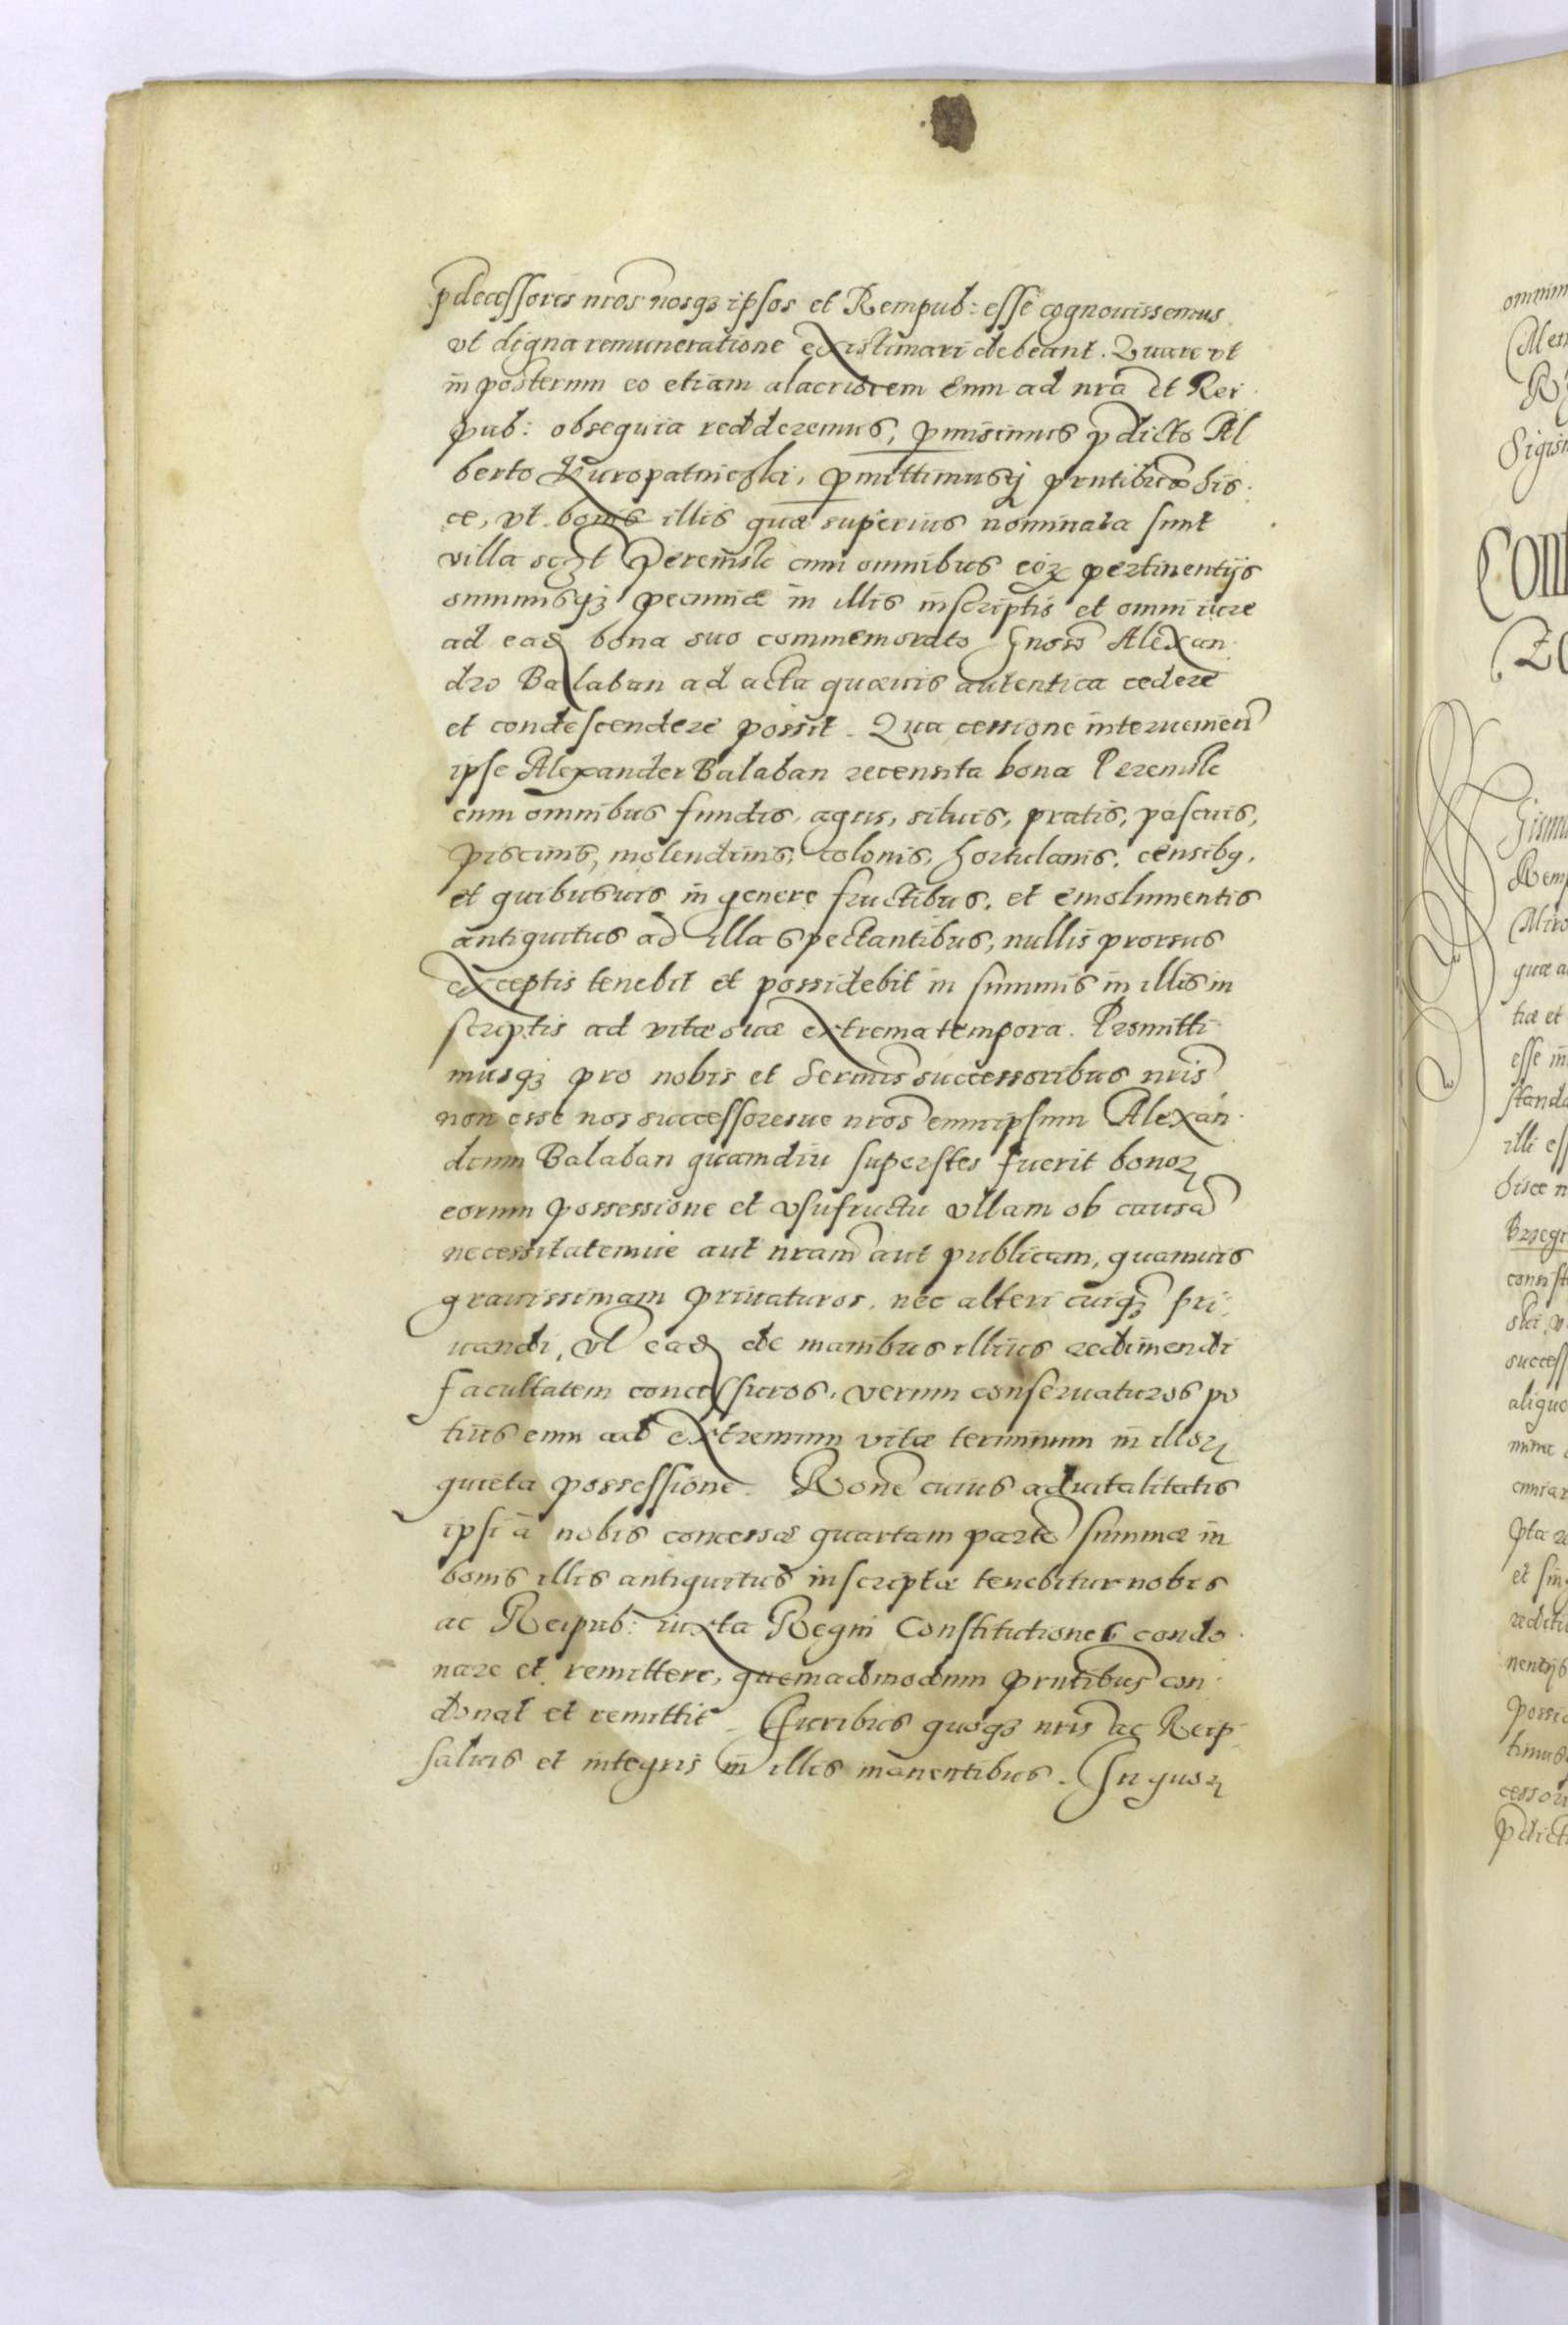 pdecessores nros nosq3 ipsos et Rempub: esse cognouissemus
vt digna remuneratione existimari debeant. Quare vt
in posterum eo etiam alacriorem Eum ad nra et Rei
pub: obsequia redderemus, pmisimus pdicto Al
berto Kuropatnicski, pmittimusq prntibus his
ce, vt bonis illis quæ superius nominata sunt
villa sczt Peremisk cum omnibus eoz pertinentijs
summisq3 pecuniæ in illis inscriptis et omni iure
ad ead bona suo commemorato Gnoso Alexan
dro Balaban ad acta quæuis autentica cedere
et condescendere possit. Qua cessione interuenien
ipse Alexander Balaban recensita bona Peremisk
cum omnibus fundis, agris, siluis, pratis, pascuis,
piscinis, molendinis, colonis, hortulanis, censibq,
et quibusuis in genere fructibus, et emolumentis
antiquitus ad illa spectantibus, nullis prorsus
exceptis tenebit et possidebit in summis in illis in
scriptis ad vitæ suæ extrema tempora. Promitti
musq3 pro nobis et Sermis successoribus nris
non esse nos successoresue nros eumipsum Alexan
drum Balaban quamdiu superstes fuerit bonoz
eorum possessione et vsufructu vllam ob causa
necessitatemue aut nram aut publicam, quamuis
grauissimam priuaturos, nec alteri cuiq3 pri
uandi, vl ead de manibus illius redimendi
facultatem concessuros, verum conseruaturos po
tius eum ad extremum vitæ terminum in illoz
quieta possessione. Rone cuius aduitalitatis
ipsi a nobis concessæ quartam parte summæ in
bonis illis antiquitus inscriptæ tenebitur nobis
ac Reipub: iuxta Regni Constitutiones condo
nare et remittere, quemadmodum prntibus con
donat et remittit. Iuribus quoq3 nris ac Reip
saluis et integris in illis manentibus. In quoz